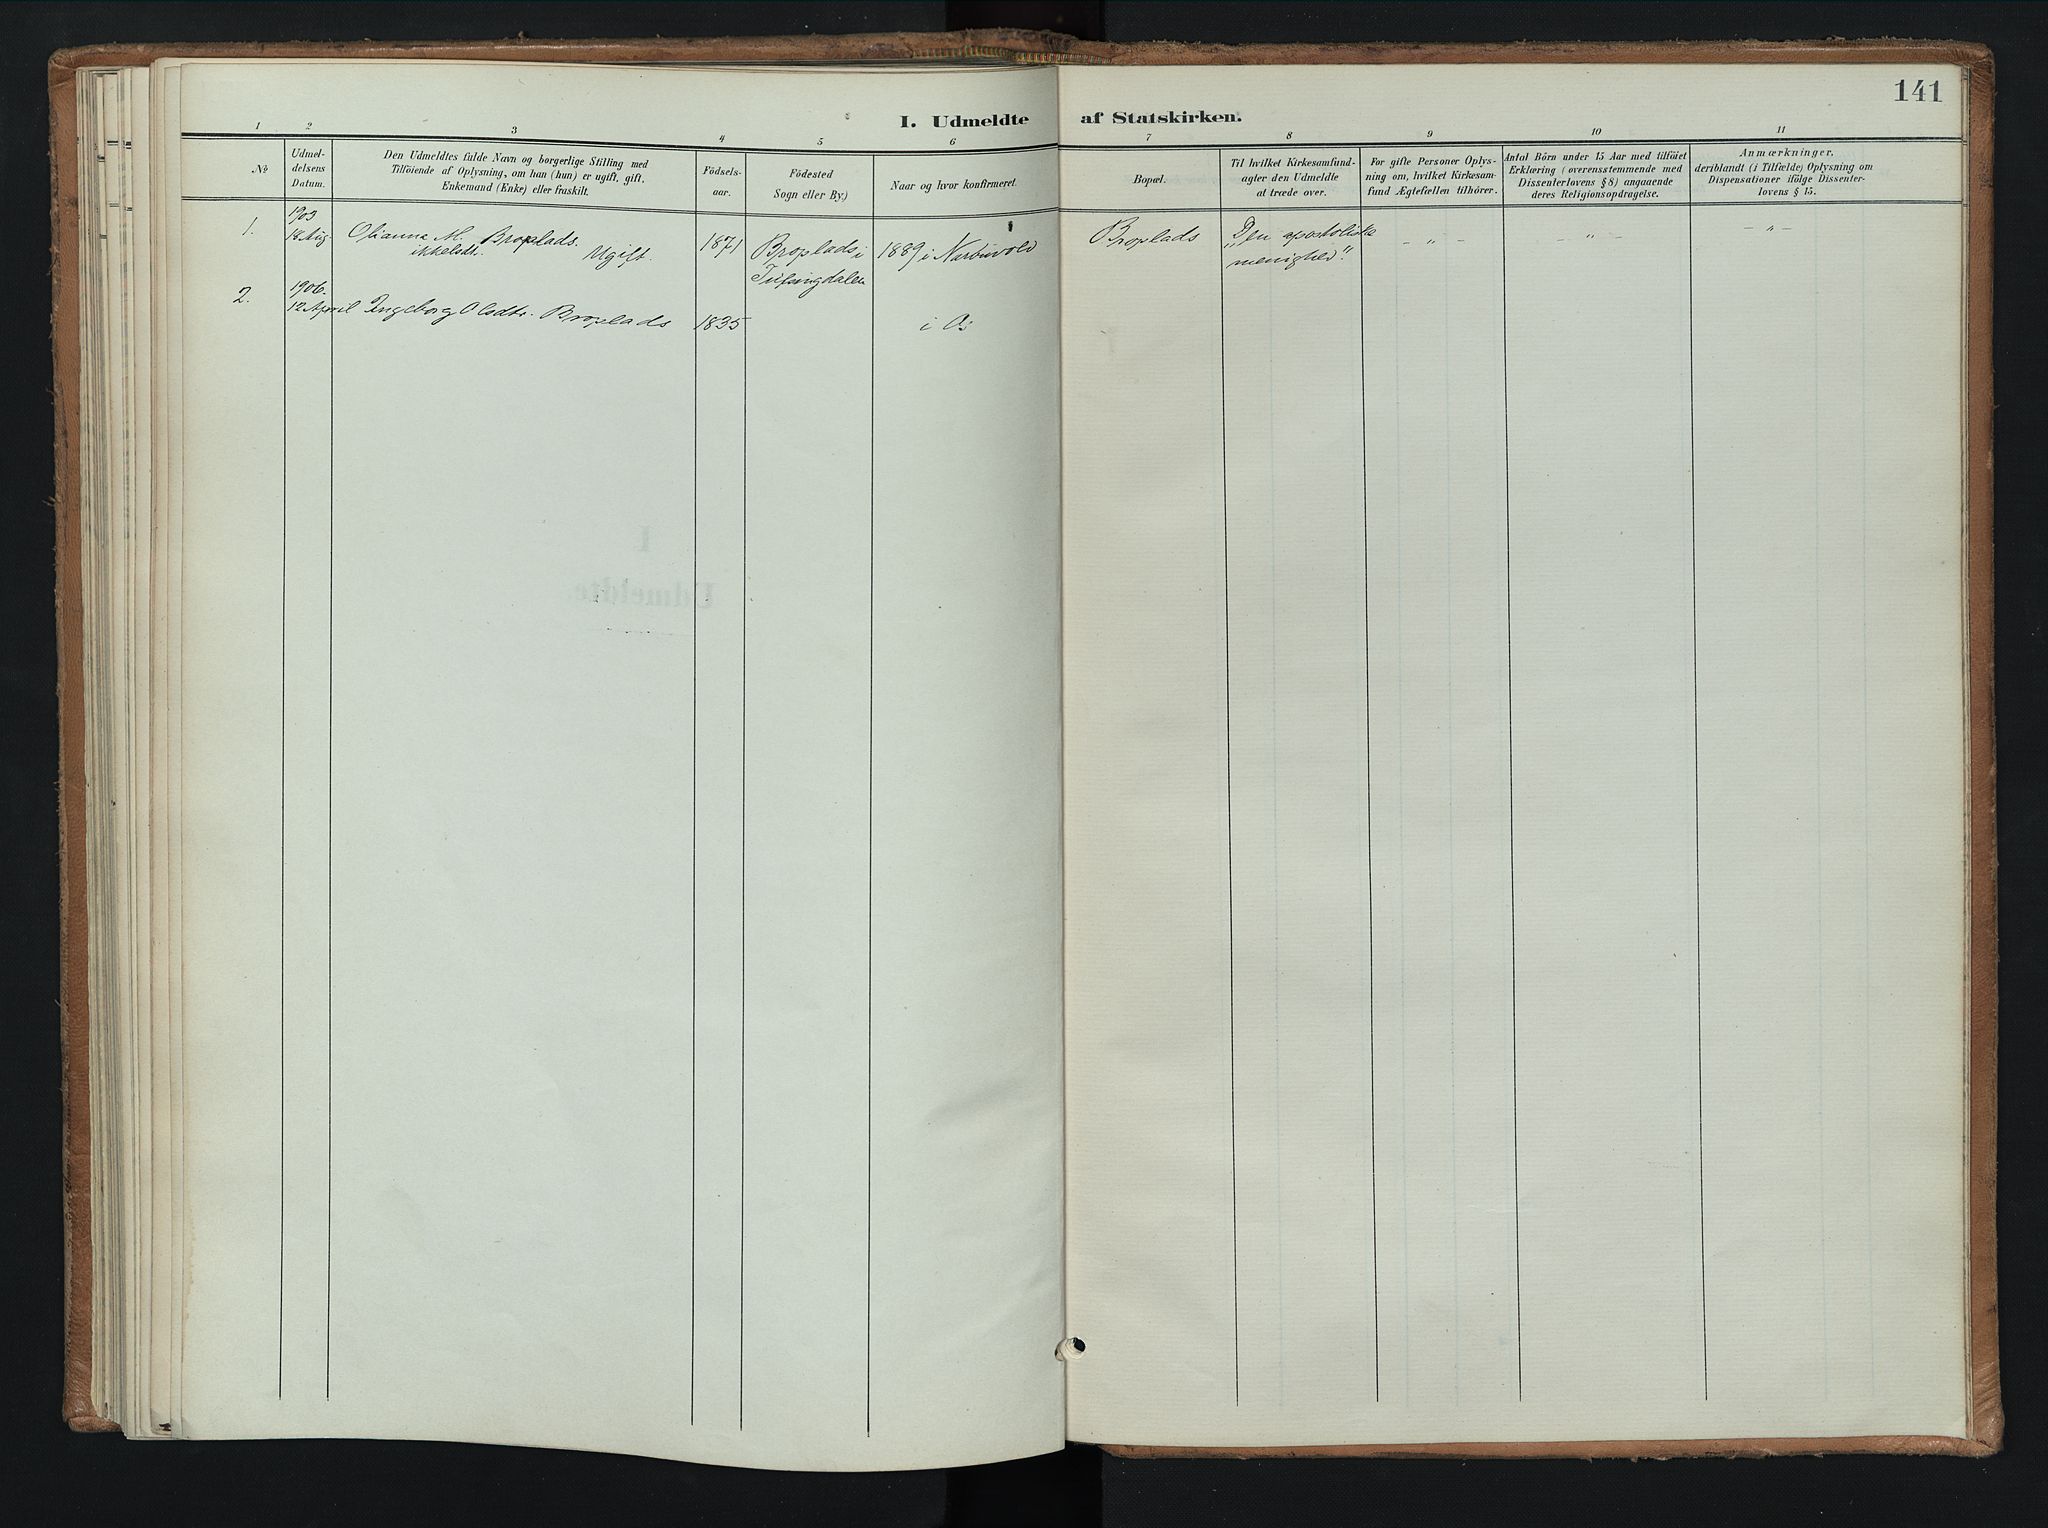 141
I. Udmeldte af Statskirken.
1 2 3 4 5 6 7 8 9 10 11
No
Udmel-
delsens
Datum.
Den Udmeldtes fulde Navn og borgerlige Stilling med
Tilföiende af Oplysning, om han (hun) er ugift, gift,
Enkemand (Enke) eller fraskilt.
Födsels-
aar.
Födested
Sogn eller By.)
Naar og hvor konfirmeret.
Bopæl.
Til hvilket Kirkesamfund-
agter den Udmeldte
at træde over.
For gifte Personer Oplys-
ning om, hvilket Kirkesam-
fund Ægtefællen tilhörer.
Antal Börn under 15 Aar med tilföiet
Erklæring (overensstemmende med
Dissenterlovens § 8) angaaende
deres Religionsopdragelse.
Anmærkninger,
deriblandt (i Tilfælde) Oplysning om
Dispensationer ifölge Dissenter-
lovens § 15.
1.
1903
18 Aug.
Olianna M. Broplads.
Ugift.
1871
Broplads i
Tufsingdalen
1889 i Narbuvold
Broplads
"Den apostoliske
menighed".
- " -
- " -
- " -
2.
1906.
12 April
Ingeborg Olsdtr. Broplads
1835
i Os
I
Udmeldte.